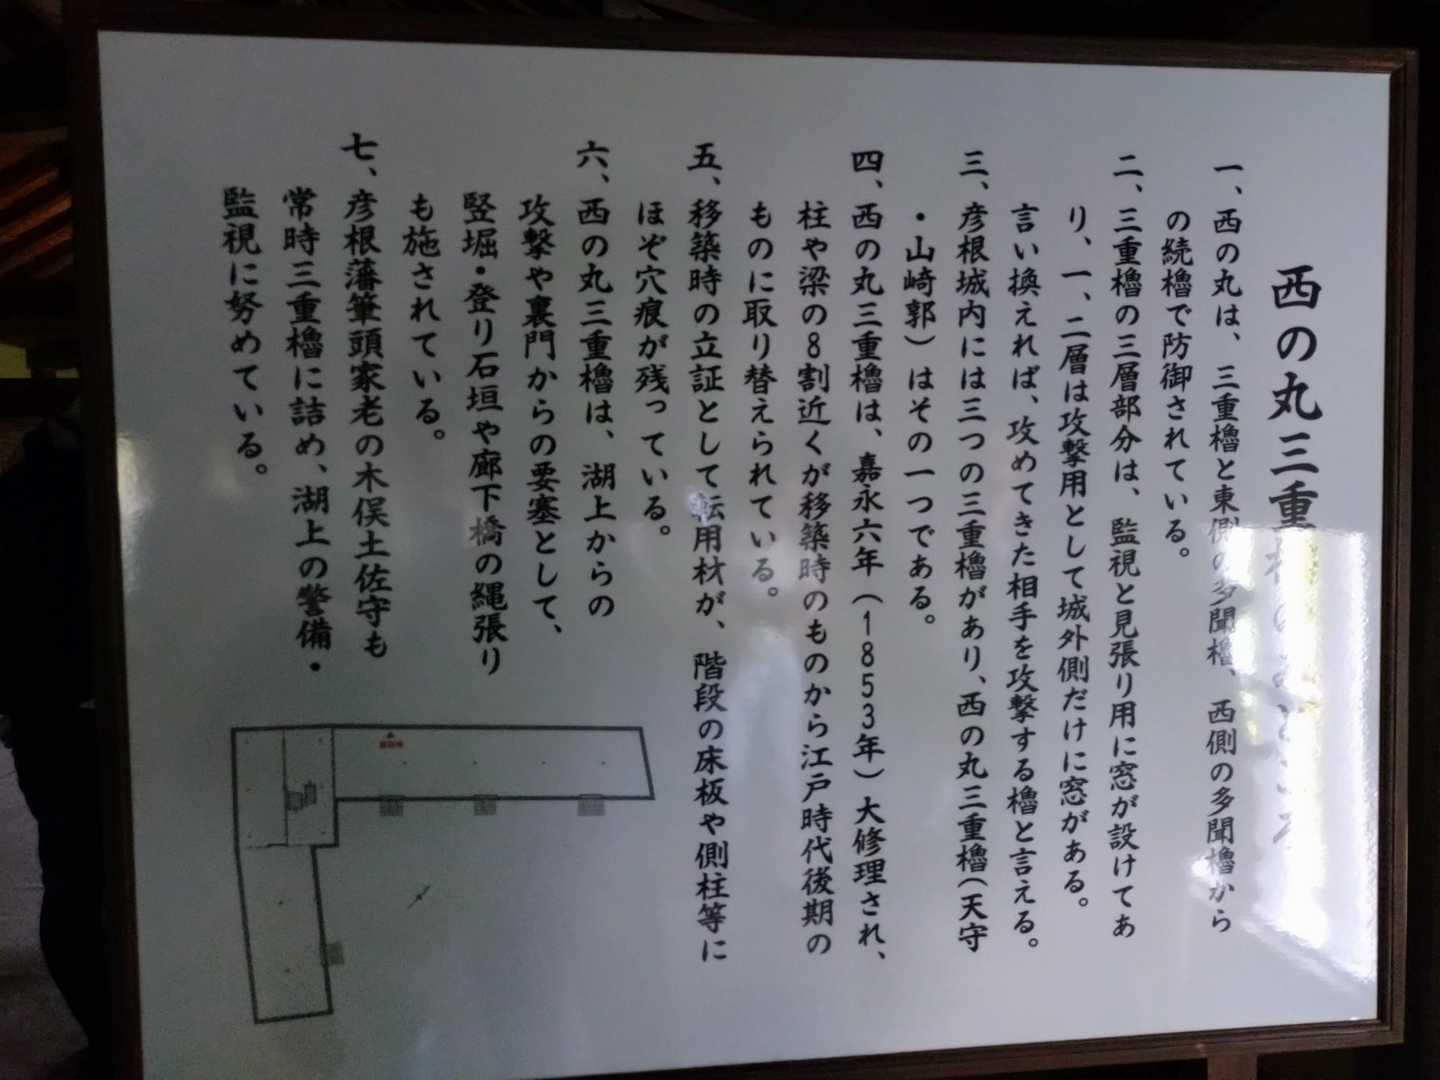 西の丸三重櫓のみどころ
一、西の丸は、三重櫓と東側の多聞櫓、西側の多聞櫓から
の続櫓で防御されている。
二、三重櫓の三層部分は、監視と見張り用に窓が設けてあ
り、一、二層は攻撃用として城外側だけに窓がある。
言い換えれば、攻めてきた相手を攻撃する櫓と言える。
三、彦根城内には三つの三重櫓があり、西の丸三重櫓(天守
・山崎郭)はその一つである。
四、西の丸三重櫓は、嘉永六年(1853年)大修理され、
柱や梁の8割近くが移築時のものから江戸時代後期の
ものに取り替えられている。
五、移築時の立証として転用材が、階段の床板や側柱等に
ほぞ穴痕が残っている。
六、西の丸三重櫓は、湖上からの
攻撃や裏門からの要塞として、
竪堀・登り石垣や廊下橋の縄張り
も施されている。
七、彦根藩筆頭家老の木俣土佐守も
常時三重櫓に詰め、湖上の警備・
監視に努めている。